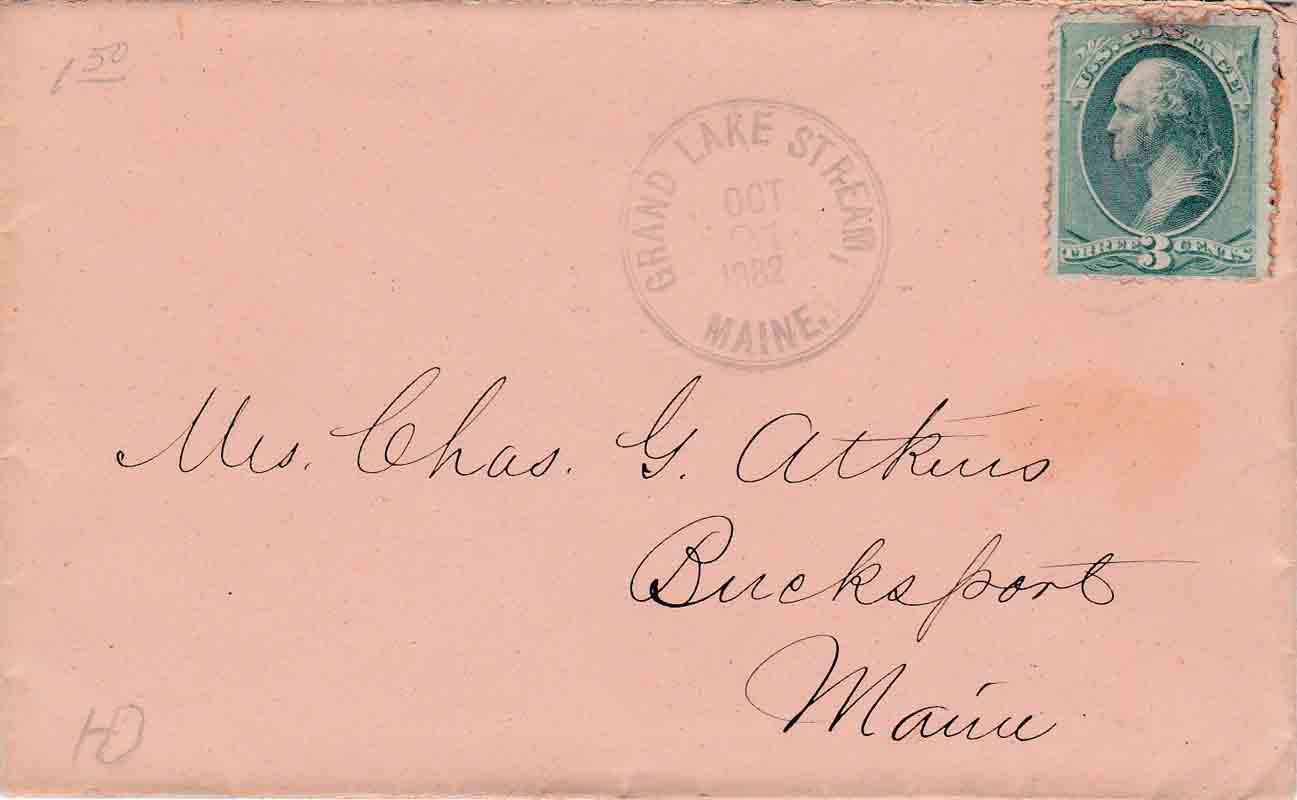 1 50
U.S. POSTAGE
THREE 3 CENTS
GRAND LAKE STREAM,
OCT
1882
MAINE.
Mrs. Chas. G. Atkins
Bucksport
Maine